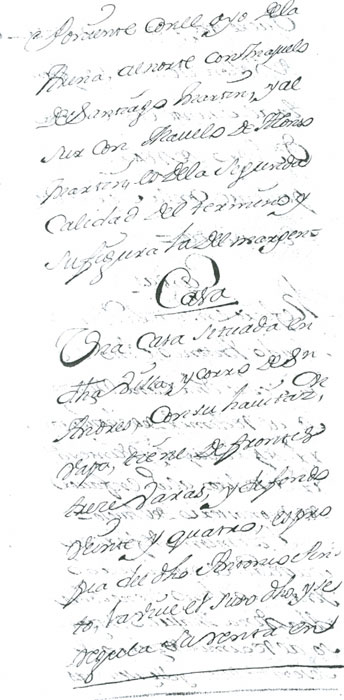 a Poniente con el ayo de la
Reina, al norte con Majuelo
de Santiago Martin, y al
Sur con Majuelo de Alonso
Martin, lo de la Segunda
Calidad del termino y
su figura la del margen
Casa
Una Casa situada en
dha Villa, y corro de Sn
Andres, con su havitaz. de
vajo, tiene de frontis
trece varas, y de fondo
veinte y quatro, es pro
pia del dho Antonio
to, la vive el suso dho, y se
regula su renta en